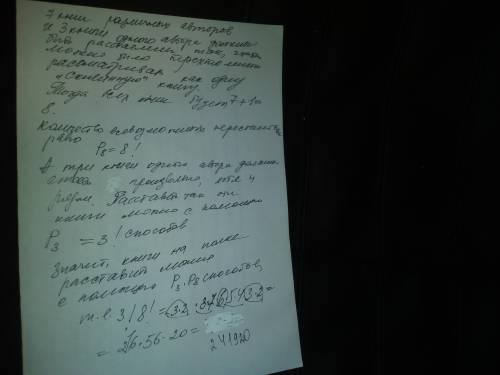 7 книг различных авторов
и 3 книги одного автора должны
быть расставлены так, чтобы
можно было
рассматривая как одну
"склеенную" книгу.
Тогда всех книг будет 7+1=
8.
Количество всевозможных перестановок
равно
P₈=8!
А три книги одного автора должны
стоять произвольно, хотя и
рядом. Расставить так эти
книги можно с помощью
P₃ = 3! способов
Значит, книги на полке
расставить можно
с помощью P₃·P₈ способов,
т.е. 3!8! = 3·2·8·7·6·5·4·3·2=
= 36·56·20=
241920